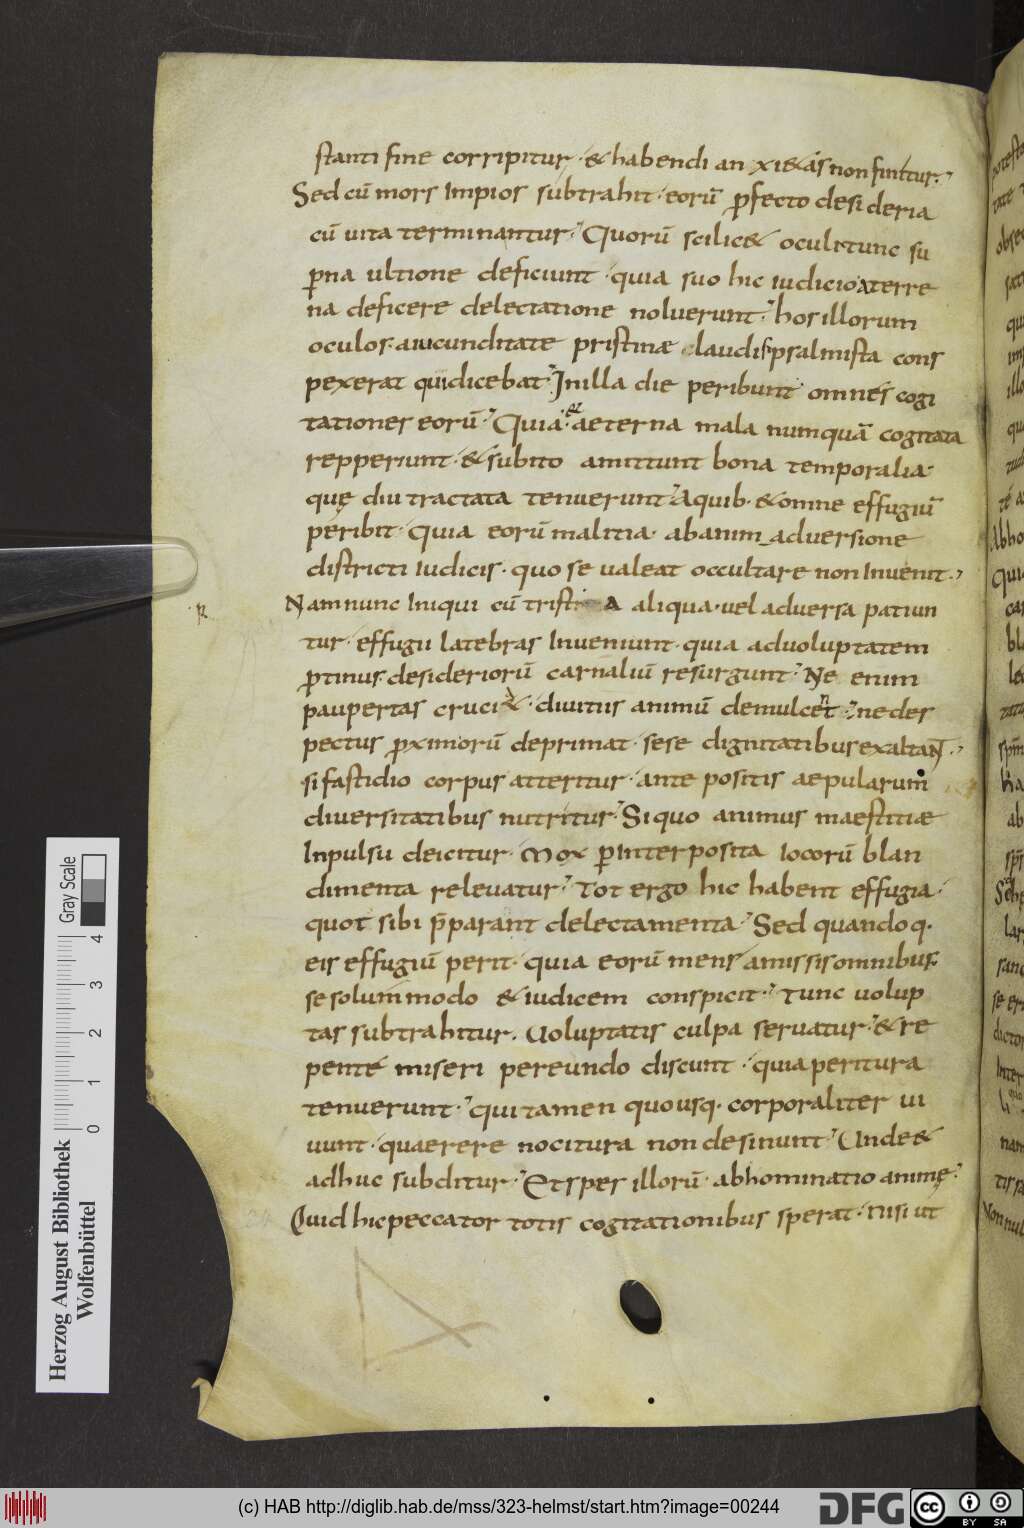 stanti fine corripitur · & habendi anxi&as non finitur ·
Sed cū mors impios subtrahit · eorū pfecto desideria
cū vita terminantur · Quorū scilic& oculi tunc su
pna ultione deficiunt · quia suo hic iudicio a terre
na deficere delectatione noluerunt · hos illorum
oculos · a iucunditate pristinæ laudis psalmista cons
pexerat qui dicebat · In illa die peribunt omnes cogi
tationes eorū · Quia · & aeterna mala numquā cogitata
repperiunt · & subito amittunt bona temporalia ·
quę diu tractata tenuerunt · A quib · & omne effugiū
peribit · quia eorū malitia · ab animadversione
districti iudicis · quo se valeat occultare non invenit ·
R
Nam nunc iniqui cū tristia aliqua · vel adversa patiun
tur · effugii latebras inveniunt · quia ad voluptatem
ptinus · desideriorū carnaliū resurgunt · Ne enim
paupertas cruci& · divitiis animū demulcent · ne des
pectus pximorū deprimat · sese dignitatibus exaltant ·
si fastidio corpus atteritur · ante positis aepularum
diversitatibus nutritur · Si quo animus maestitiæ
inpulsu deicitur · mox pinterposita iocorū blan
dimenta relevatur · Tot ergo hic habent effugia ·
quot sibi p̄parant delectamenta · Sed quandoq ·
eis effugiū perit · quia eorū mens amissis omnibus ·
se solummodo & iudicem conspicit · Tunc volup
tas subtrahitur · Voluptatis culpa servatur · & re
pente miseri pereundo discunt · quia peritura
tenuerunt · qui tamen quousq · corporaliter vi
vunt · quaerere nocitura non desinunt · Unde &
adhuc subditur · Et spes illorū · abhominatio animę ·
Quid hic peccator totis cogitationibus sperat · nisi ut
Gray Scale
0 1 2 3 4
Herzog August Bibliothek
Wolfenbüttel
(c) HAB http://diglib.hab.de/mss/323-helmst/start.htm?image=00244
DFG
cc BY SA